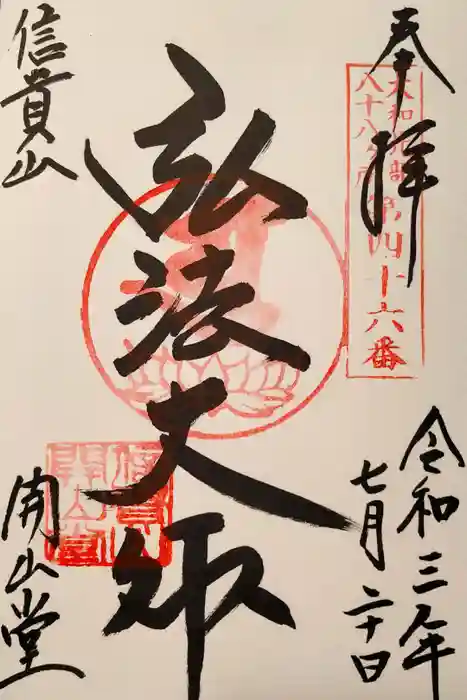 奉拝
大和北部
八十八ヶ所
第四十六番
令和三年
七月二十日
弘法大師
信貴山
開山堂